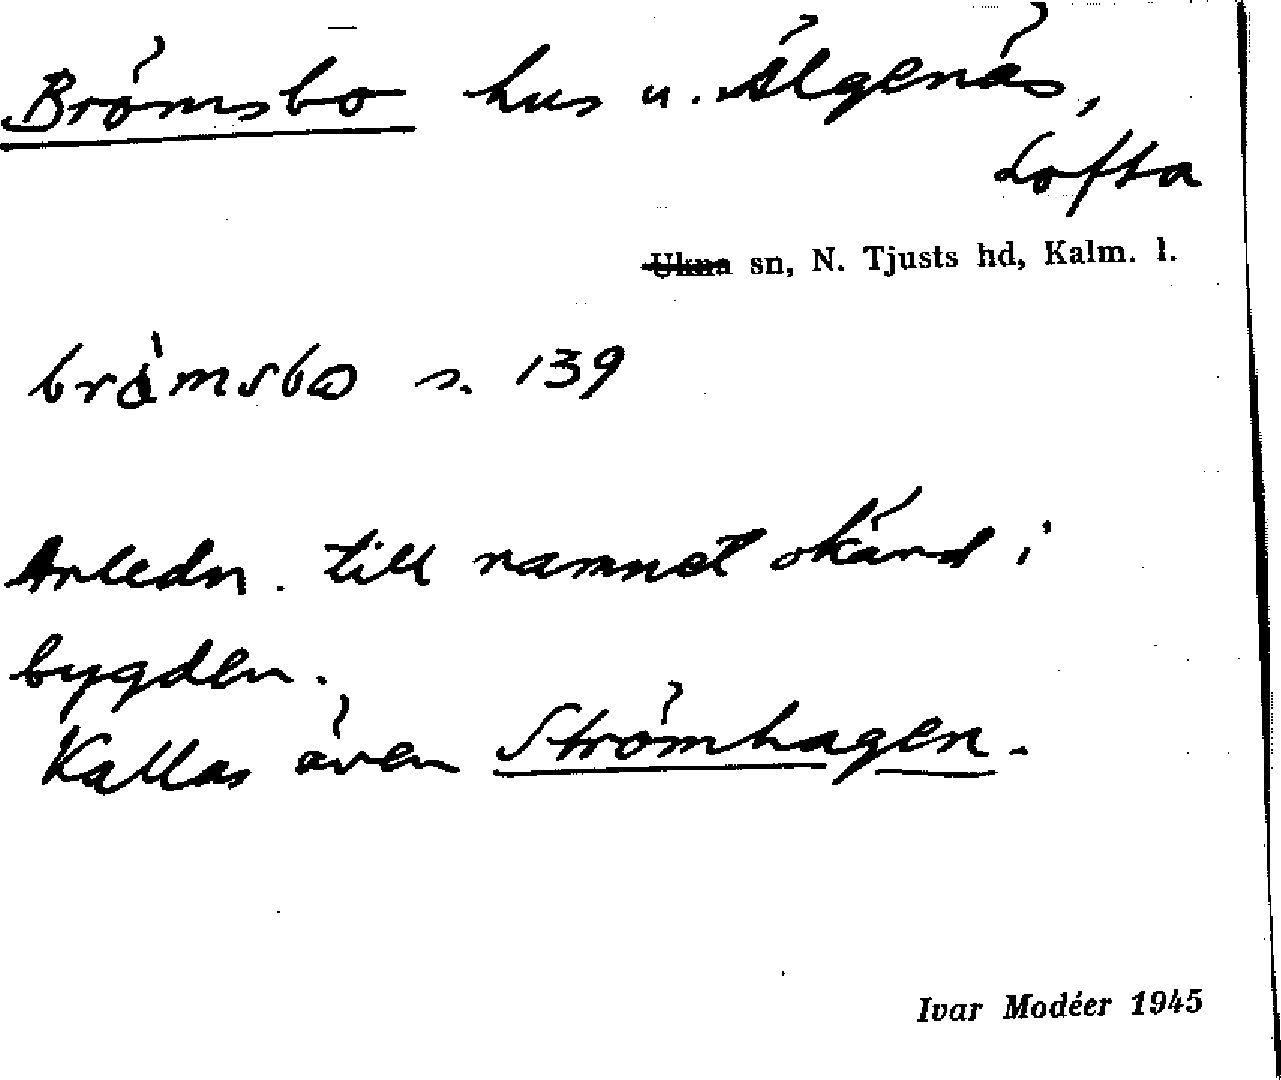 Brömsbo hus u. Älgenäs,
Lofta
Ukna sn, N. Tjusts hd, Kalm. l.
s. 139
Anledn. till namnet okänd i
bygden.
Kallas även Strömhagen.
Ivar Modéer 1945